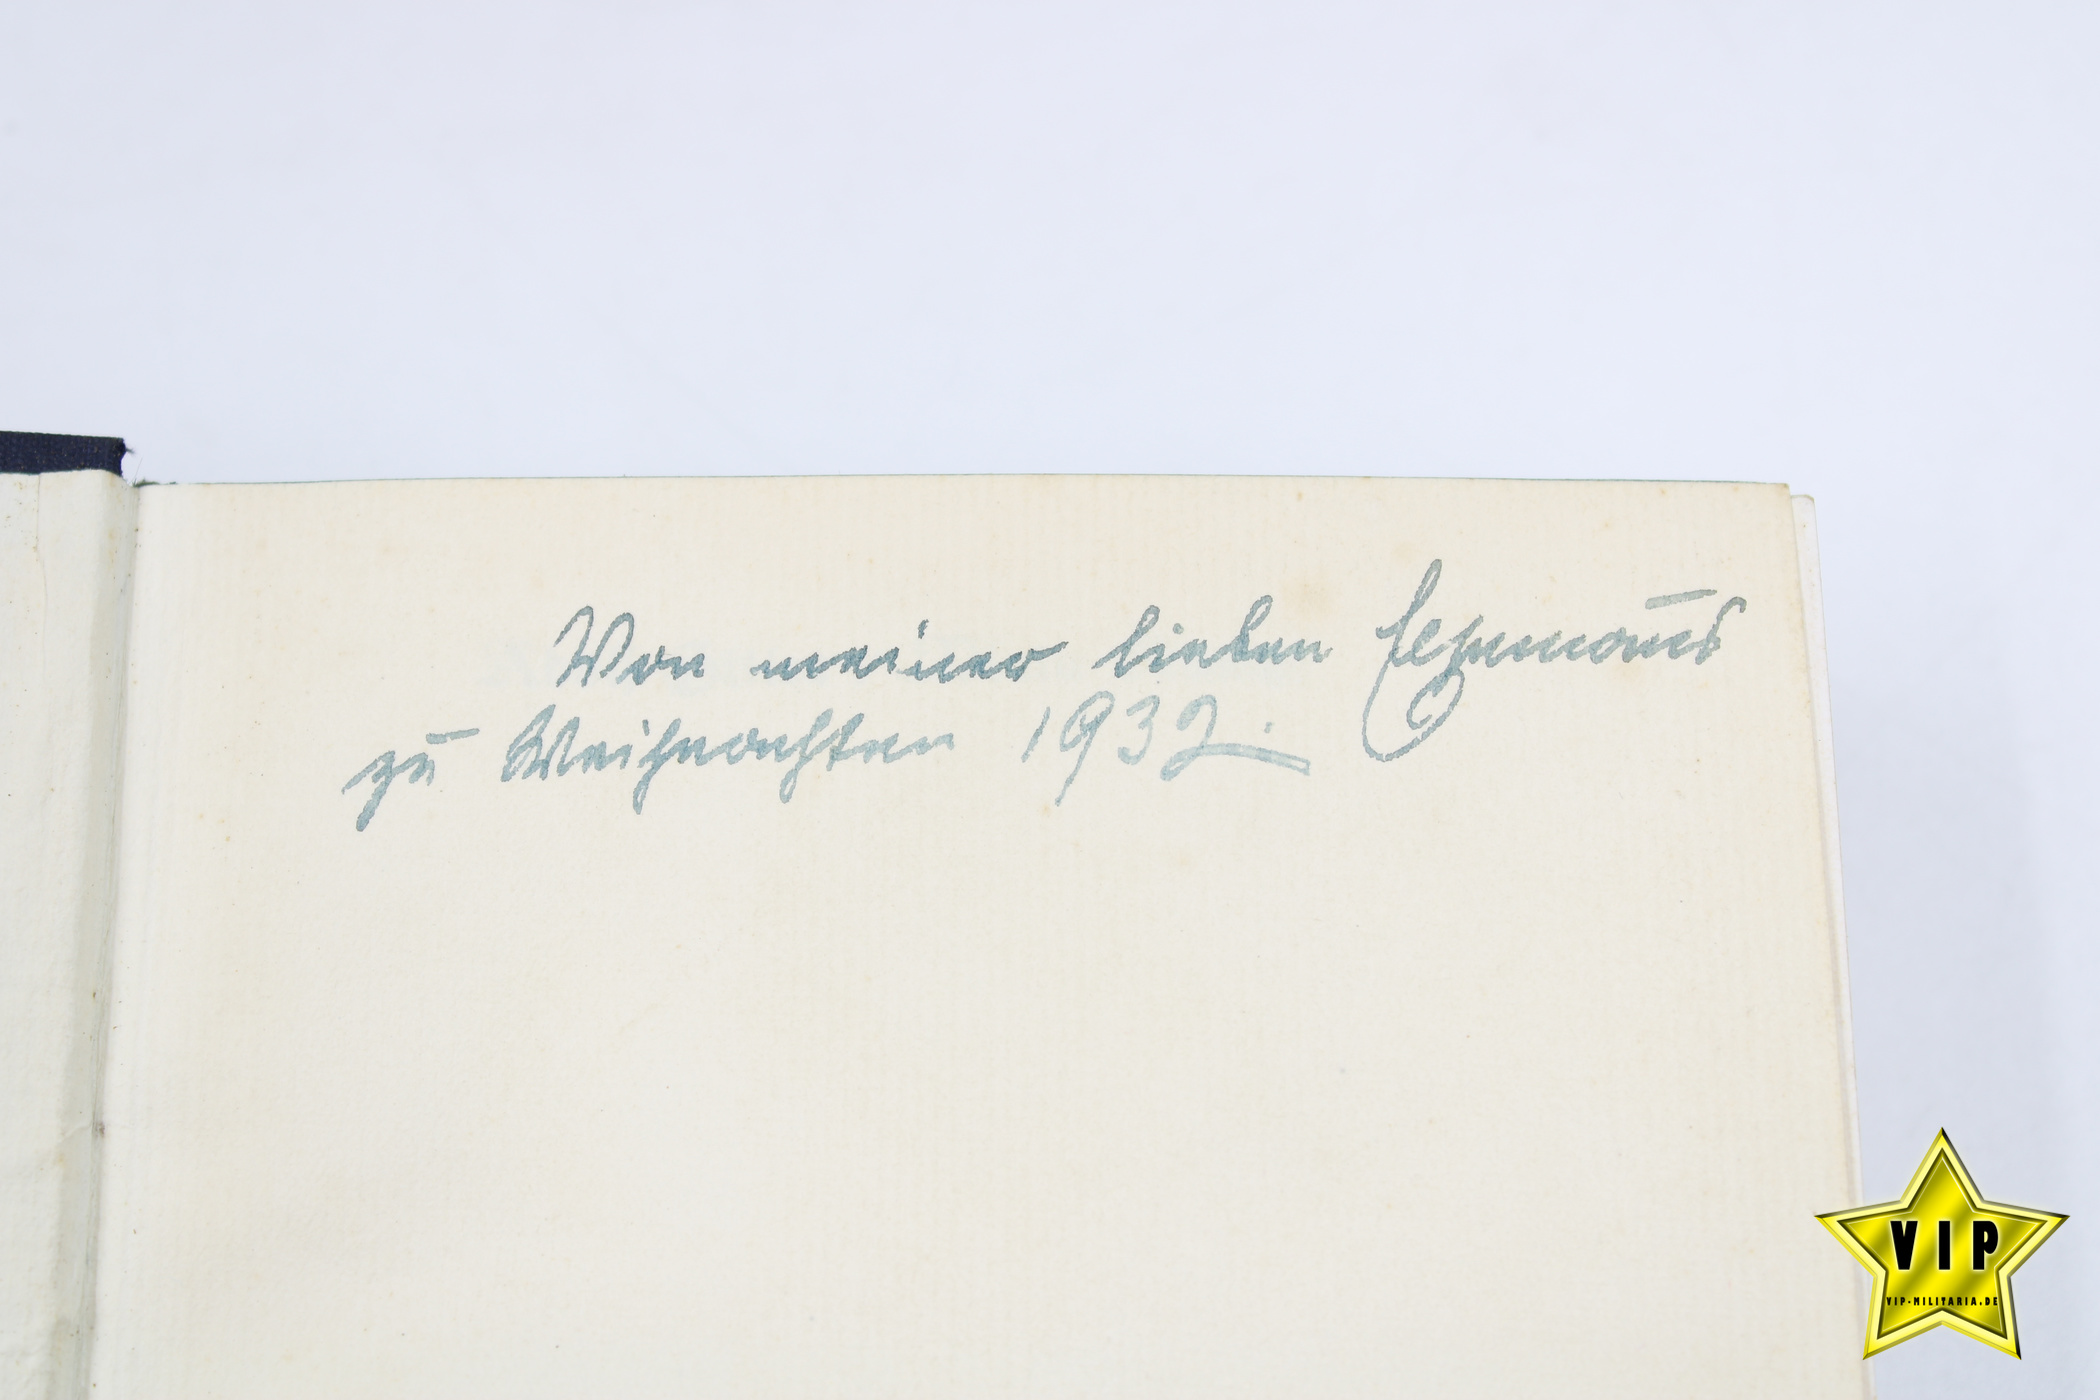 Von meiner lieben Ehemaus
zu Weihnachten 1932.
VIP
VIP-MILITARIA.DE